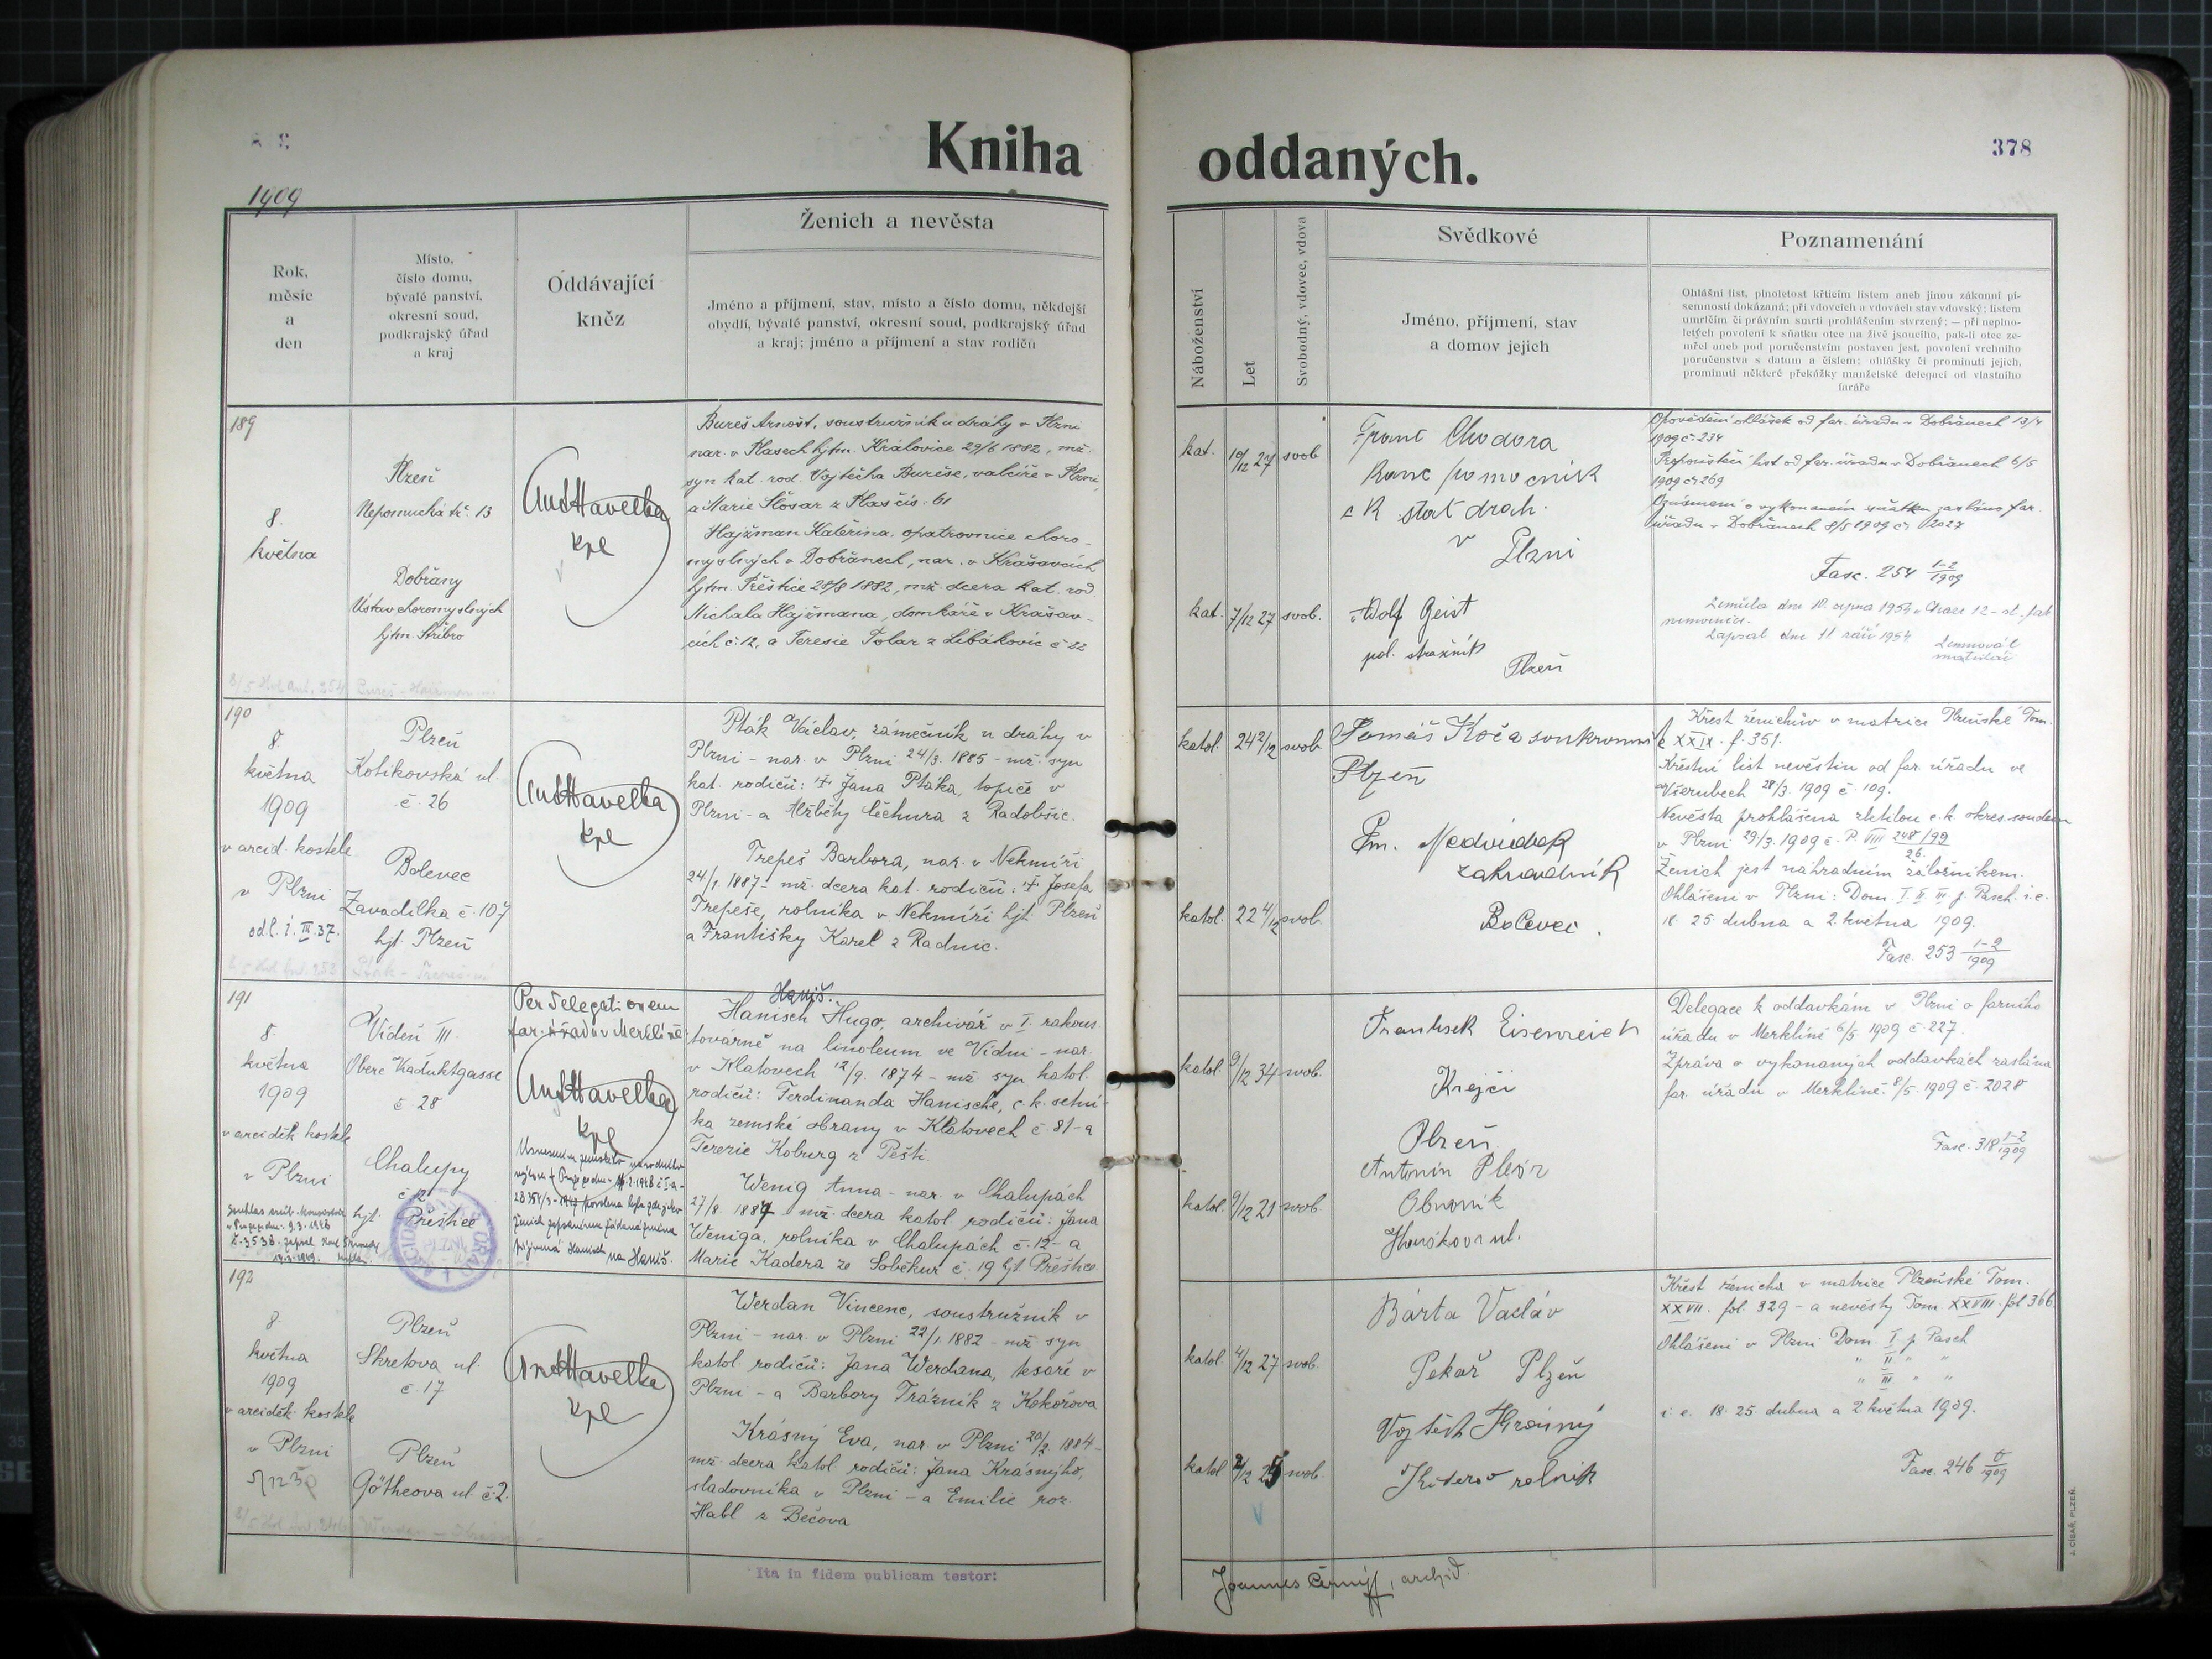 Kniha
oddaných.
378
1909
Rok,
měsíc
a
den
Místo,
číslo domu,
bývalé panství,
okresní soud,
podkrajský úřad
a kraj
Oddávající
kněz
Ženich a nevěsta
Jméno a příjmení, stav, místo a číslo domu, někdejší
obydlí, bývalé panství, okresní soud, podkrajský úřad
a kraj; jméno a příjmení a stav rodičů
Náboženství
Let
Svobodný, vdovec, vdova
Svědkové
Jméno, příjmení, stav
a domov jejich
Poznamenání
Ohlášní list, plnoletost křticím listem aneb jinou zákonní pí-
semností dokázaná; při vdovcích a vdovách stav vdovský; listem
umrlčím či právním smrti prohlášením stvrzený; — při neplno-
letých povolení k sňatku otce na živě jsoucího, pak-li otec ze-
mřel aneb pod poručenstvím postaven jest, povolení vrchního
poručenstva s datum a číslem; ohlášky či prominutí jejich,
prominutí některé překážky manželské delegací od vlastního
faráře
189
8.
května
Plzeň
Nepomucká tř. 13
Dobřany
Ústav choromyslných
hjtm. Stříbro
Ant Havelka
kpl
Bureš Arnošt, soustružník u dráhy v Plzni
nar. v Plasech hjtm. Kralovice 29/6 1882, mž.
syn kat. rod. Vojtěcha Bureše, valcíře v Plzni,
a Marie Šlosar z Plas čís. 61
Hajžman Kateřina, opatrovnice choro-
myslných v Dobřanech, nar. v Krašovcích
hjtm. Přeštice 28/8 1882, mž. dcera kat. rod.
Michala Hajžmana, domkáře v Krašov-
cích č. 12, a Teresie Tolar z Libákovic č 22
kat. 10/12 27 svob
kat. 7/12 27 svob.
Franc Chodora
Kanc pomocník
c k stat drah.
v
Plzni
Adolf Geist
pol. strážník
Plzeň
Opovědění ohlášek od far. úřadu v Dobřanech 13/4
1909 č. 234
Propouštěcí list od far. úřadu v Dobřanech 6/5
1909 č. 269
Oznámení o vykonaném sňatku zasláno far.
úřadu v Dobřanech 8/5 1909 č. 2027
Fasc. 254 1-2/1909
Zemřela dne 10. srpna 1954
Zapsal dne 11 září 1954
190
8
května
1909
v arcid. kostele
v Plzni
Plzeň
Kotikovská ul
č. 26
Bolevec
Zavadilka č. 107
hjt. Plzeň
Ant Havelka
kpl
Pták Václav, zámečník u dráhy v
Plzni - nar. v Plzni 24/3. 1885 - mž. syn
kat. rodičů: † Jana Ptáka, topiče v
Plzni - a Alžběty Čechura z Radobšic.
Trepeš Barbora, nar. v Nekmíři
24/1. 1887 - mž. dcera kat. rodičů: † Josefa
Trepeše, rolníka v Nekmíři hjt. Plzeň
a Františky Karel z Radnic.
katol. 24 2/12 svob
katol. 22 4/12 svob.
Tomáš Koča soukromník
Plzeň
Fm. Medvídek
zahradník
Bolevec.
Křest ženichův v matrice Plzeňské Tom.
XXIX. f. 351.
Křestní list nevěstin od far. úřadu ve
Všerubech 28/3. 1909 č. 109.
Nevěsta prohlášena zletilou c. k. okres. soudem
v Plzni 29/3. 1909 č. P. VIII 248/99
26.
Ženich jest náhradním záložníkem.
Ohlášeni v Plzni: Dom. I. II. III p. Pasch. i. e.
25 dubna a 2. května 1909.
Fasc. 253 1-2/1909
191
8.
května
1909
v arciděk. kostele
v Plzni
Vídeň III.
Obere Viaduktgasse
č 28
Chalupy
č 12
hjt. Přeštice
Per delegationem
far. úřadu v Merklíně:
Ant Havelka
kpl
Haniš.
Hanisch Hugo, archivář v I. rakous.
továrně na linoleum ve Vídni - nar.
v Klatovech 12/9. 1874 - mž. syn katol.
rodičů: Ferdinanda Hanische, c. k. setní-
ka zemské obrany v Klatovech č. 81 - a
Terezie Koburg z Pešti.
Wenig Anna - nar. v Chalupách
27/8. 1887 mž. dcera katol. rodičů: Jana
Weniga, rolníka v Chalupách č. 12 - a
Marie Kadera ze Soběkur č. 19 hjt Přeštice
katol. 9/12 34 svob.
katol. 9/12 21 svob.
Frantisek Eisenreich
Krejčí
Plzeň
Antonín
Obuvník
ul.
Delegace k oddavkám v Plzni o farního
úřadu v Merklíně 6/5 1909 č. 227.
Zpráva o vykonaných oddavkách zaslána
far. úřadu v Merklíně 8/5. 1909 č. 2028
Fasc. 318 1-2/1909
192
8
května
1909
v arciděk. kostele
v Plzni
Plzeň
Skretova ul.
č. 17
Plzeň
Götheova ul. č. 2.
Ant Havelka
kpl
Werdan Vincenc, soustružník v
Plzni - nar. v Plzni 22/1. 1882 - mž. syn
katol. rodičů: Jana Werdana, tesaře v
Plzni - a Barbory Trázník z Kokořova
Krásný Eva, nar. v Plzni 20/2. 1884 -
mž. dcera katol. rodičů: Jana Krásného,
sladovníka v Plzni - a Emilie roz.
Habl z Bečova
katol. 4/12 27 svob.
katol 2/12 25 svob.
Bárta Vacláv
Pekař Plzeň
Vojtěch Krásný
rolník
Křest ženicha v matrice Plzeňské Tom.
XXVII. fol. 329 - a nevěsty Tom. XXVIII. fol 366.
Ohlášeni v Plzni Dom. I p Pasch
" II " "
" III " "
i. e. 18. 25. dubna a 2 května 1909.
Fasc. 246 /1909
Ita in fidem publicam testor:
Joannes Černý, archid.
J. CÍSAŘ, PLZEŇ.